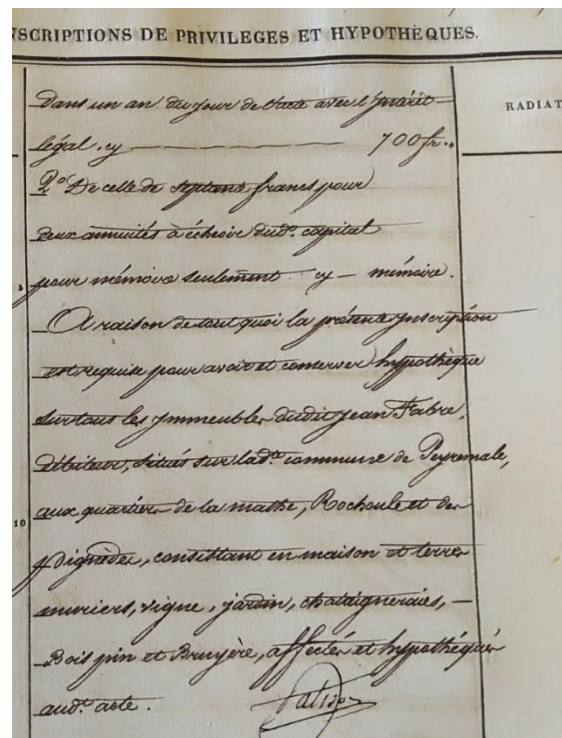 NSCRIPTIONS DE PRIVILEGES ET HYPOTHÈQUES.
RADIAT
Dans un an du jour de l'acte avec l'Intérêt
légal. cy 700 fr..
2° De celle de septante francs pour
deux annuités à échoir dud. capital
5 pour mémoire seulement cy — mémoire.
A raison de tout quoi la présente Inscription
est requise pour avoir et conserver hypothèque
sur tous les Immeubles dudit Jean Fabre,
débiteur, situés sur lad.te commune de Peyremale,
10 aux quartiers de la mathe, Rochoule et des
Pignèdes, consistant en maison et terres
muriers, vigne, jardin, chataigneraies, —
Bois pin et Bruyère, affectés et hypothéqués
aud. acte.